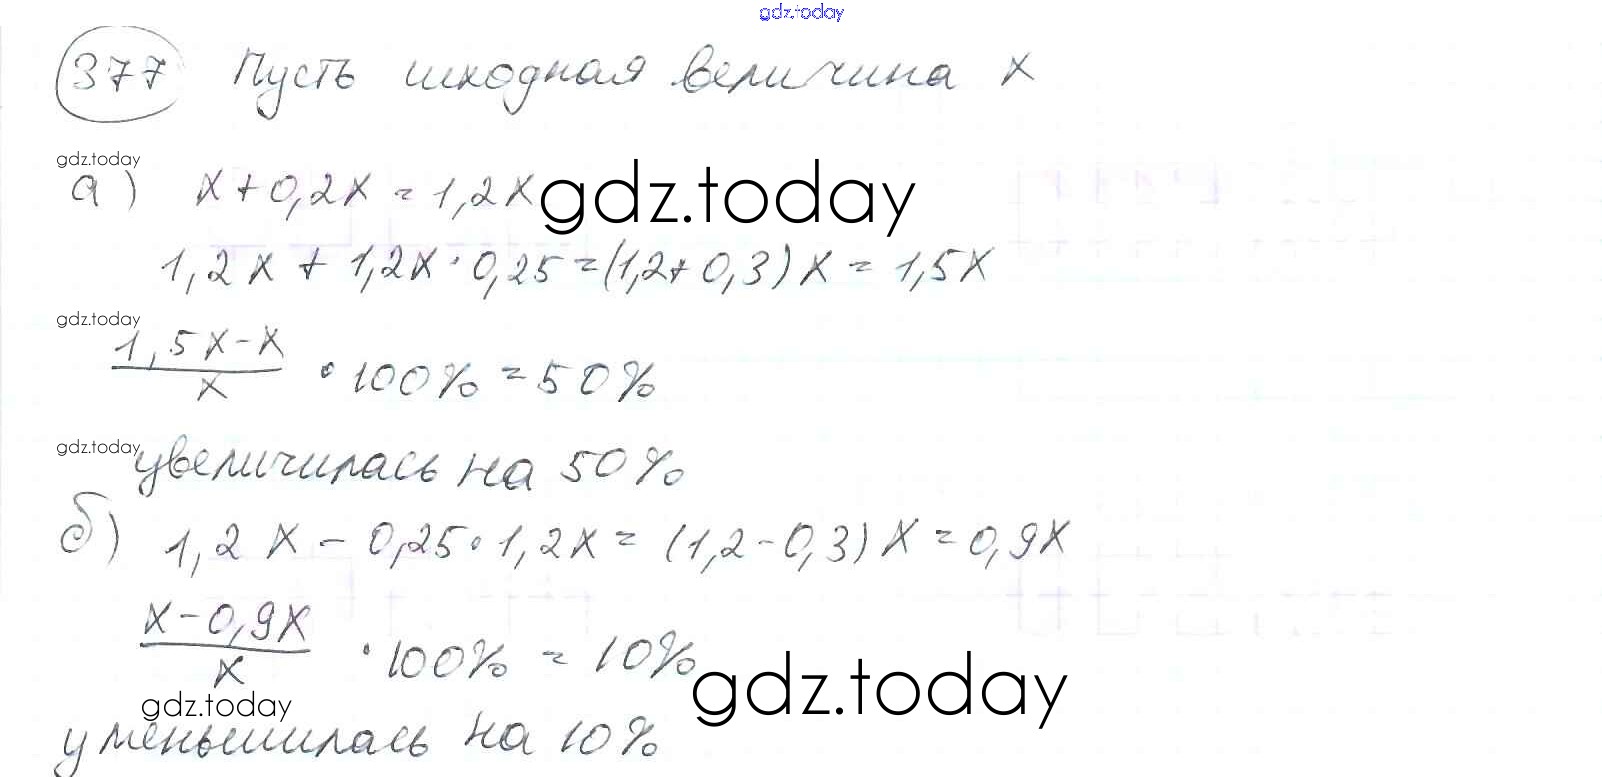 gdz.today
377 Пусть исходная величина x
gdz.today
а) x + 0,2x = 1,2x gdz.today
1,2x + 1,2x · 0,25 = (1,2 + 0,3) x = 1,5x
gdz.today
1,5x - x / x · 100% = 50%
gdz.today
увеличилась на 50%
б) 1,2x - 0,25 · 1,2x = (1,2 - 0,3) x = 0,9x
x - 0,9x / x · 100% = 10%
gdz.today gdz.today
уменьшилась на 10%